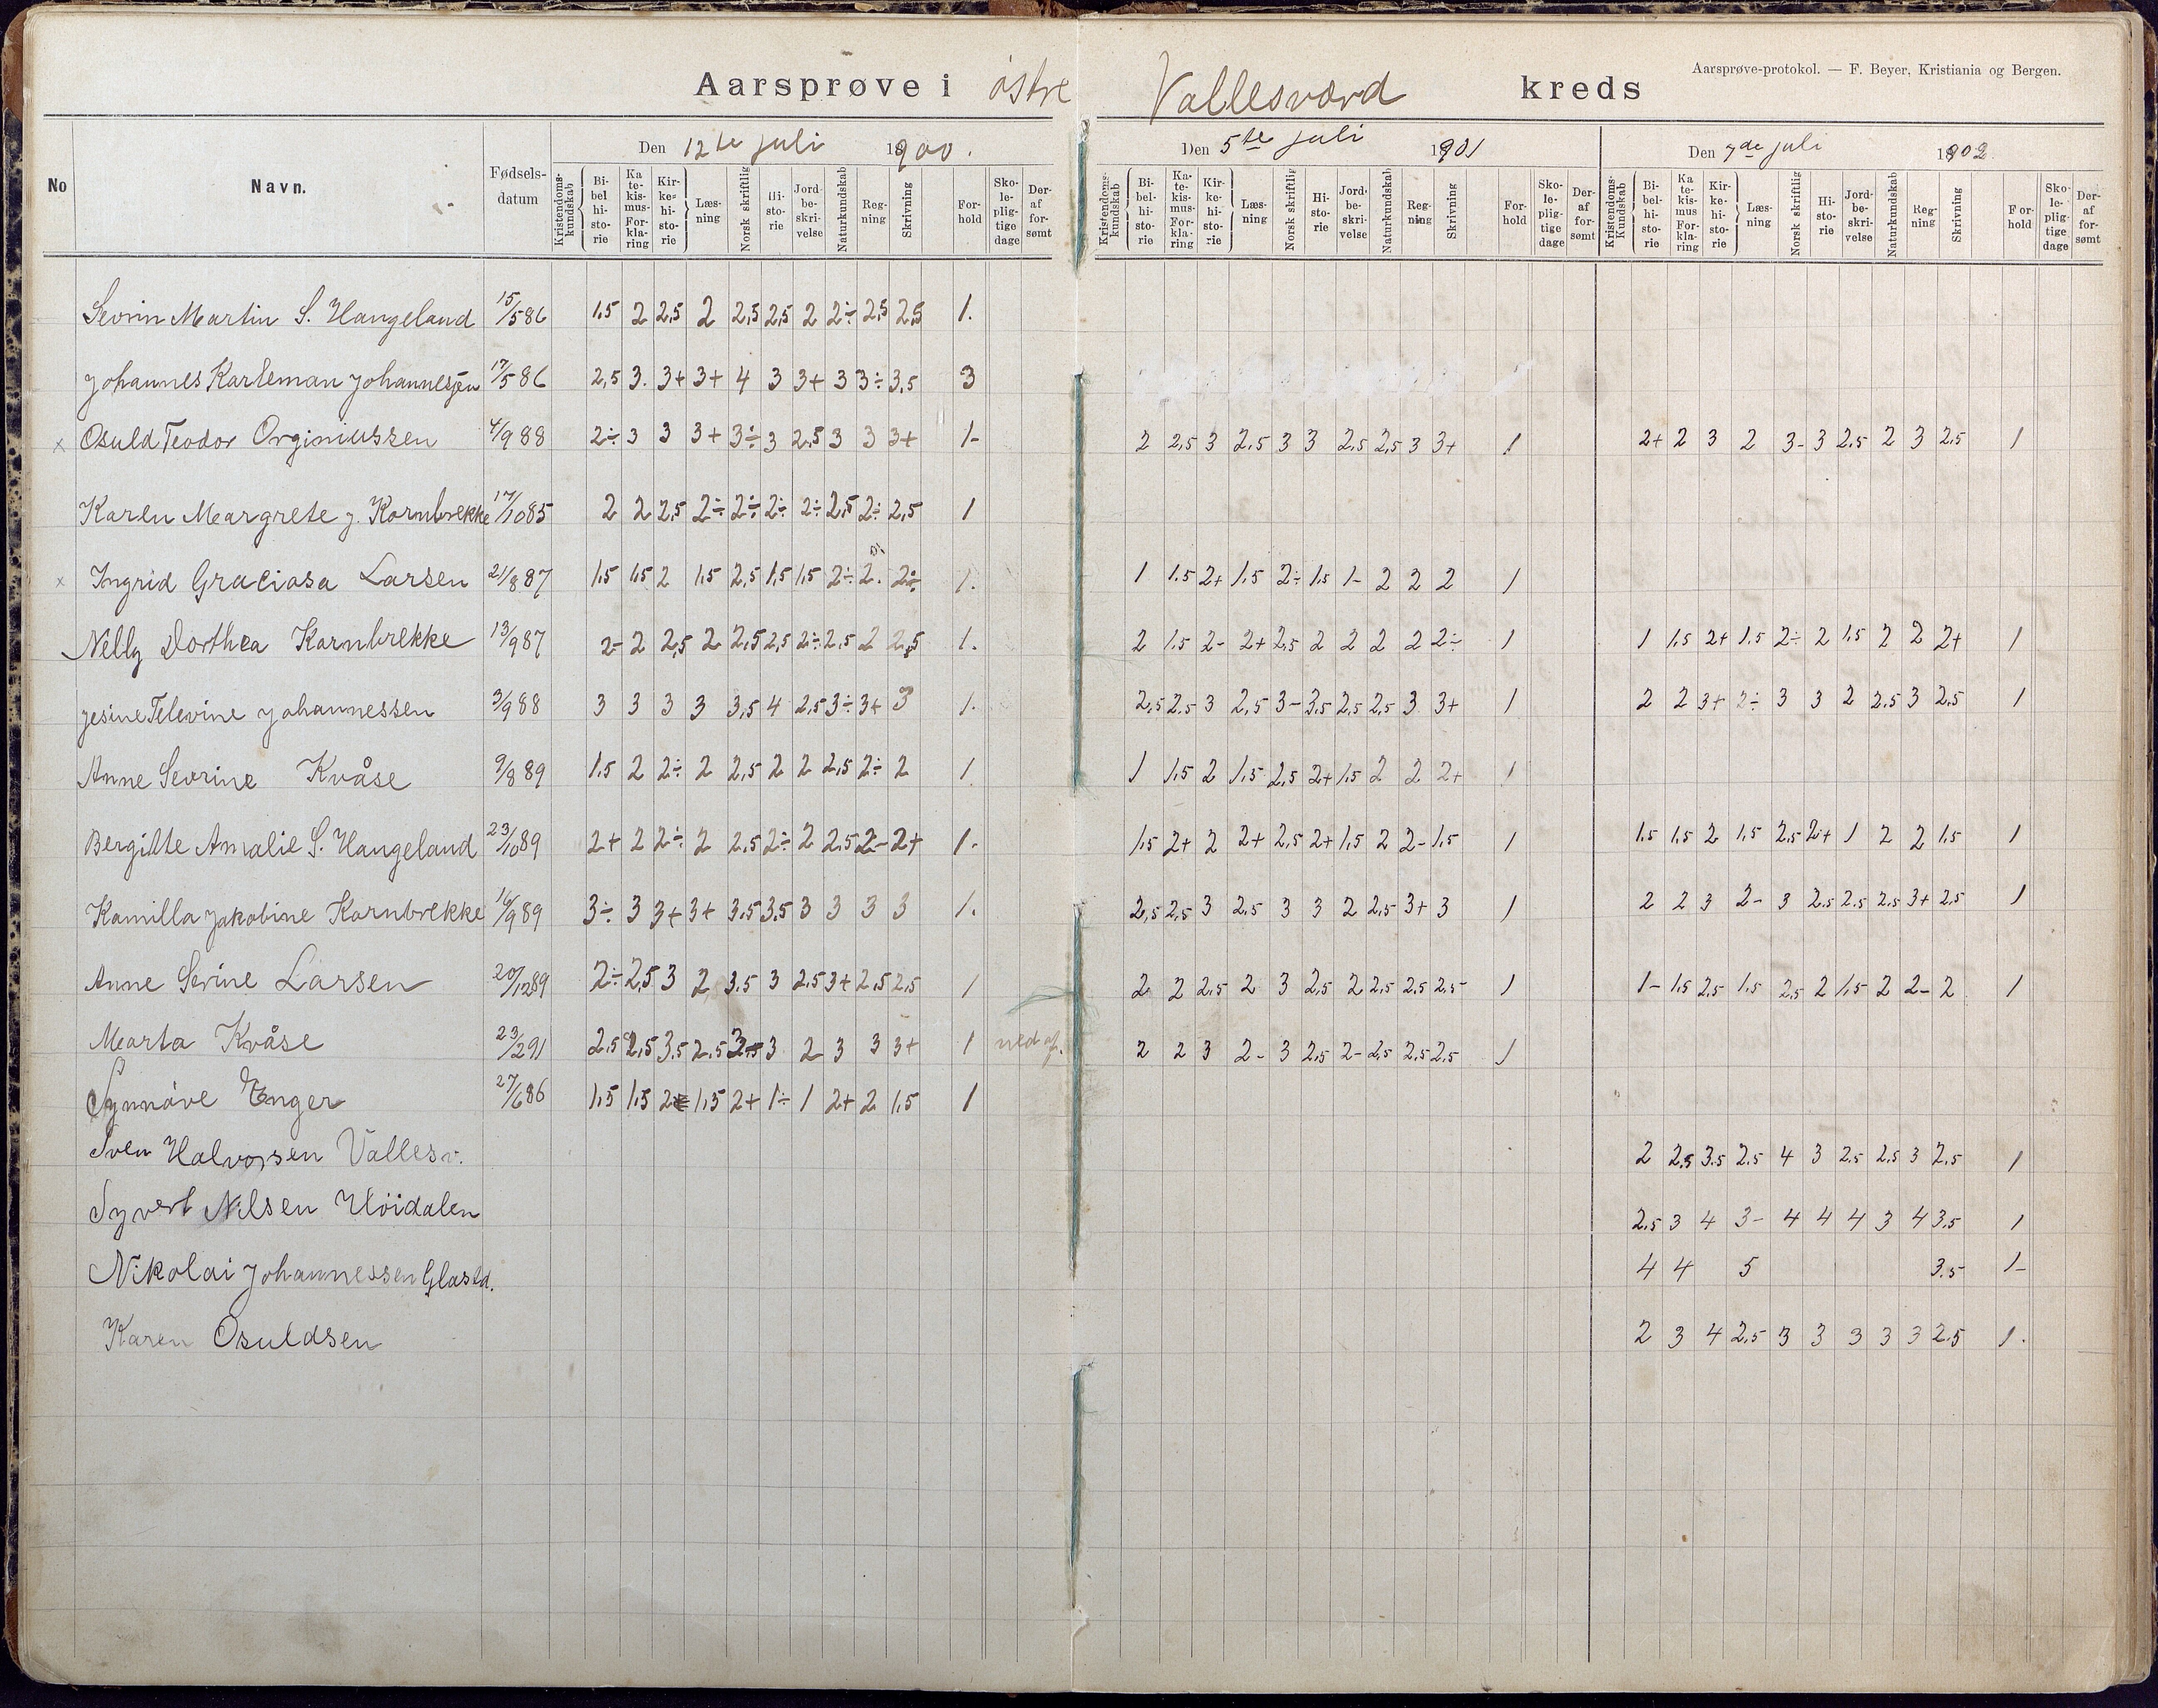 Aarsprøve-protokol. — F. Beyer, Kristiania og Bergen.
Aarsprøve i østre Vallesværd kreds
Den 12te juli 1900. Den 5te juli 1901 Den 7de juli 1902
No Navn. Fødsels-datum Kristendoms-kundskab Bi-bel hi-sto-rie Ka te-kis-mus- For-kla-ring Kir-ke-hi-sto-rie Læs-ning Norsk skriftlig Hi-sto-rie Jord-be-skri-velse Naturkundskab Reg-ning Skrivning For-hold Sko-le-plig-tige dage Der-af for-sømt Kristendoms-kundskab Bi-bel-hi-sto-rie Ka-te-kis-mus- For-kla-ring Kir-ke-hi-sto-rie Læs-ning Norsk skriftlig Hi-sto-rie Jord-be-skri-velse Naturkundskab Reg-ning Skrivning For-hold Sko-le-plig-tige dage Der-af for-sømt Kristendoms-Kundskab Bi-bel-hi-sto-rie Ka te-kis-mus For-kla-ring Kir-ke-hi-sto-rie Læs-ning Norsk skriftlig Hi-sto-rie Jord-be-skri-velse Naturkundskab Reg-ning Skrivning For-hold Sko-le-plig-tige dage Der-af for-sømt
Sevrin Martin S. Hangeland 15/5 86 1.5 2 2,5 2 2,5 2,5 2 2÷ 2,5 2,5 1.
Johannes Karleman Johannesen 17/5 86 2,5 3. 3+ 3+ 4 3 3+ 3 3÷ 3,5 3
x Osuld Teodor Orginiussen 4/9 88 2÷ 3 3 3+ 3÷ 3 2,5 3 3 3+ 1- 2 2,5 3 2,5 3 3 2,5 2,5 3 3+ 1 2+ 2 3 2 3- 3 2.5 2 3 2,5 1
Karen Margrete J. Kornbrekke 17/10 85 2 2 2,5 2÷ 2÷ 2÷ 2÷ 2,5 2÷ 2,5 1
x Ingrid Graciosa Larsen 21/8 87 1.5 1.5 2 1.5 2,5 1,5 1.5 2÷ 2. 2÷ 1. 1 1.5 2+ 1.5 2÷ 1.5 1- 2 2 2 1
Nelly Dorthea Kornbrekke 13/9 87 2- 2 2,5 2 2,5 2,5 2÷ 2,5 2 2,5 1. 2 1.5 2- 2+ 2,5 2 2 2 2 2÷ 1 1 1.5 2+ 1.5 2÷ 2 1.5 2 2 2+ 1
Jesine Televine Johannessen 3/9 88 3 3 3 3 3,5 4 2,5 3÷ 3+ 3 1. 2,5 2.5 3 2,5 3- 3,5 2,5 2,5 3 3+ 1 2 2 3+ 2÷ 3 3 2 2.5 3 2,5 1
Anne Sevrine Kvåse 9/8 89 1.5 2 2÷ 2 2,5 2 2 2,5 2÷ 2 1. 1 1.5 2 1.5 2,5 2+ 1.5 2 2 2+ 1
Bergitte Amalie S. Hangeland 23/10 89 2+ 2 2÷ 2 2,5 2÷ 2 2.5 2- 2+ 1. 1.5 2+ 2 2+ 2,5 2+ 1.5 2 2- 1.5 1 1.5 1.5 2 1.5 2,5 2+ 1 2 2 1.5 1
Kamilla Jakobine Kornbrekke 16/9 89 3÷ 3 3+ 3+ 3.5 3.5 3 3 3 3 1. 2,5 2,5 3 2,5 3 3 2 2,5 3+ 3 1 2 2 3 2- 3 2.5 2.5 2.5 3+ 2.5 1
Anne Serine Larsen 20/12 89 2÷ 2,5 3 2 3.5 3 2.5 3+ 2,5 2,5 1 2 2 2.5 2 3 2,5 2 2,5 2,5 2,5 1 1- 1.5 2,5 1.5 2,5 2 1.5 2 2- 2 1
Marta Kvåse 23/2 91 2.5 2,5 3,5 2.5 3 2 3 3 3+ 1 2 2 3 2- 3 2,5 2- 2,5 2,5 2,5 1
Synnöve Enger 27/6 86 1.5 1.5 2 1.5 2+ 1÷ 1 2+ 2 1.5 1
Sven Halvorsen Vallesv. 2 2,5 3.5 2.5 4 3 2.5 2.5 3 2,5 1
Syvert Nilsen Höidalen 2.5 3 4 3- 4 4 4 3 4 3.5 1
Nikolai Johannessen Glastd. 4 4 5 3.5 1-
Karen Osuldsen 2 3 4 2.5 3 3 3 3 3 2.5 1.